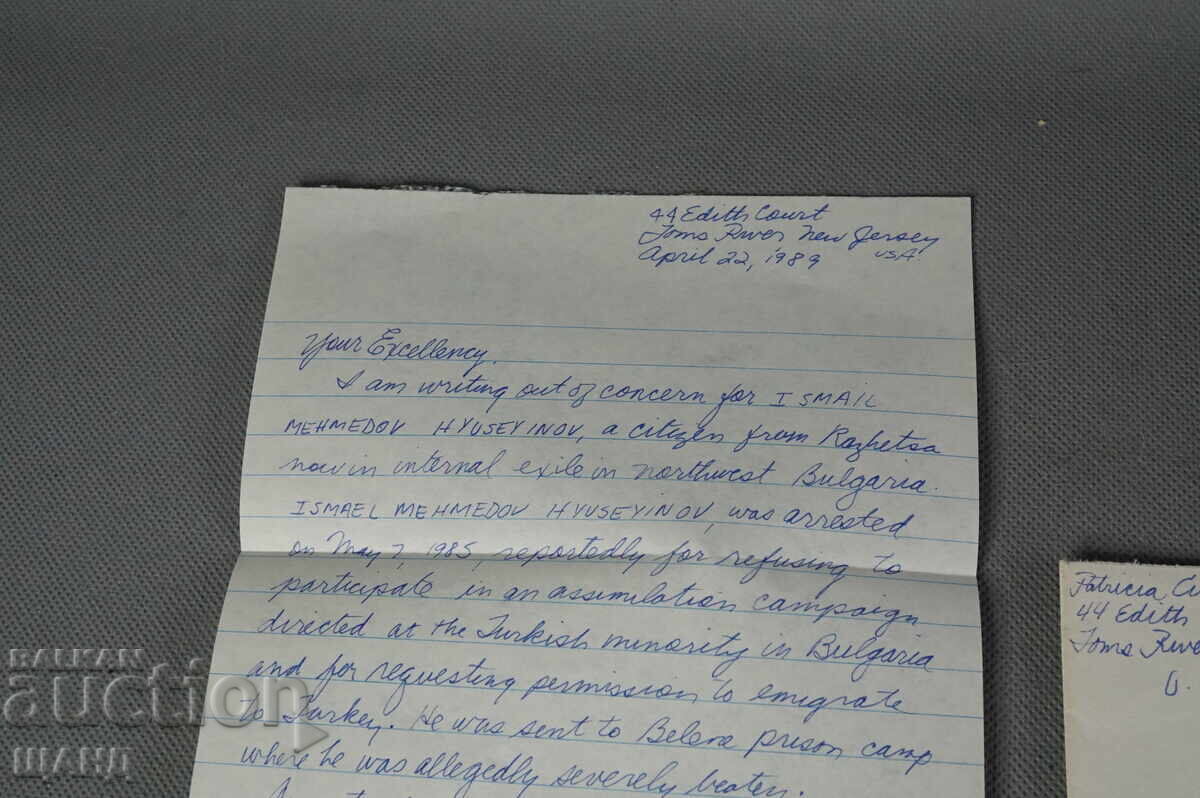 44 Edith Court
Toms River New Jersey
April 22, 1989 USA
Your Excellency.
I am writing out of concern for ISMAIL
MEHMEDOV HYUSEYINOV, a citizen from Razhetsa
now in internal exile in northwest Bulgaria.
ISMAEL MEHMEDOV HYUSEYINOV, was arrested
on May 7, 1985, reportedly for refusing to
participate in an assimilation campaign
directed at the Turkish minority in Bulgaria
and for requesting permission to emigrate
to Turkey. He was sent to Belene prison camp
where he was allegedly severely beaten.
Patricia
44 Edith
Toms River
BALKAN
auction
ШАНД